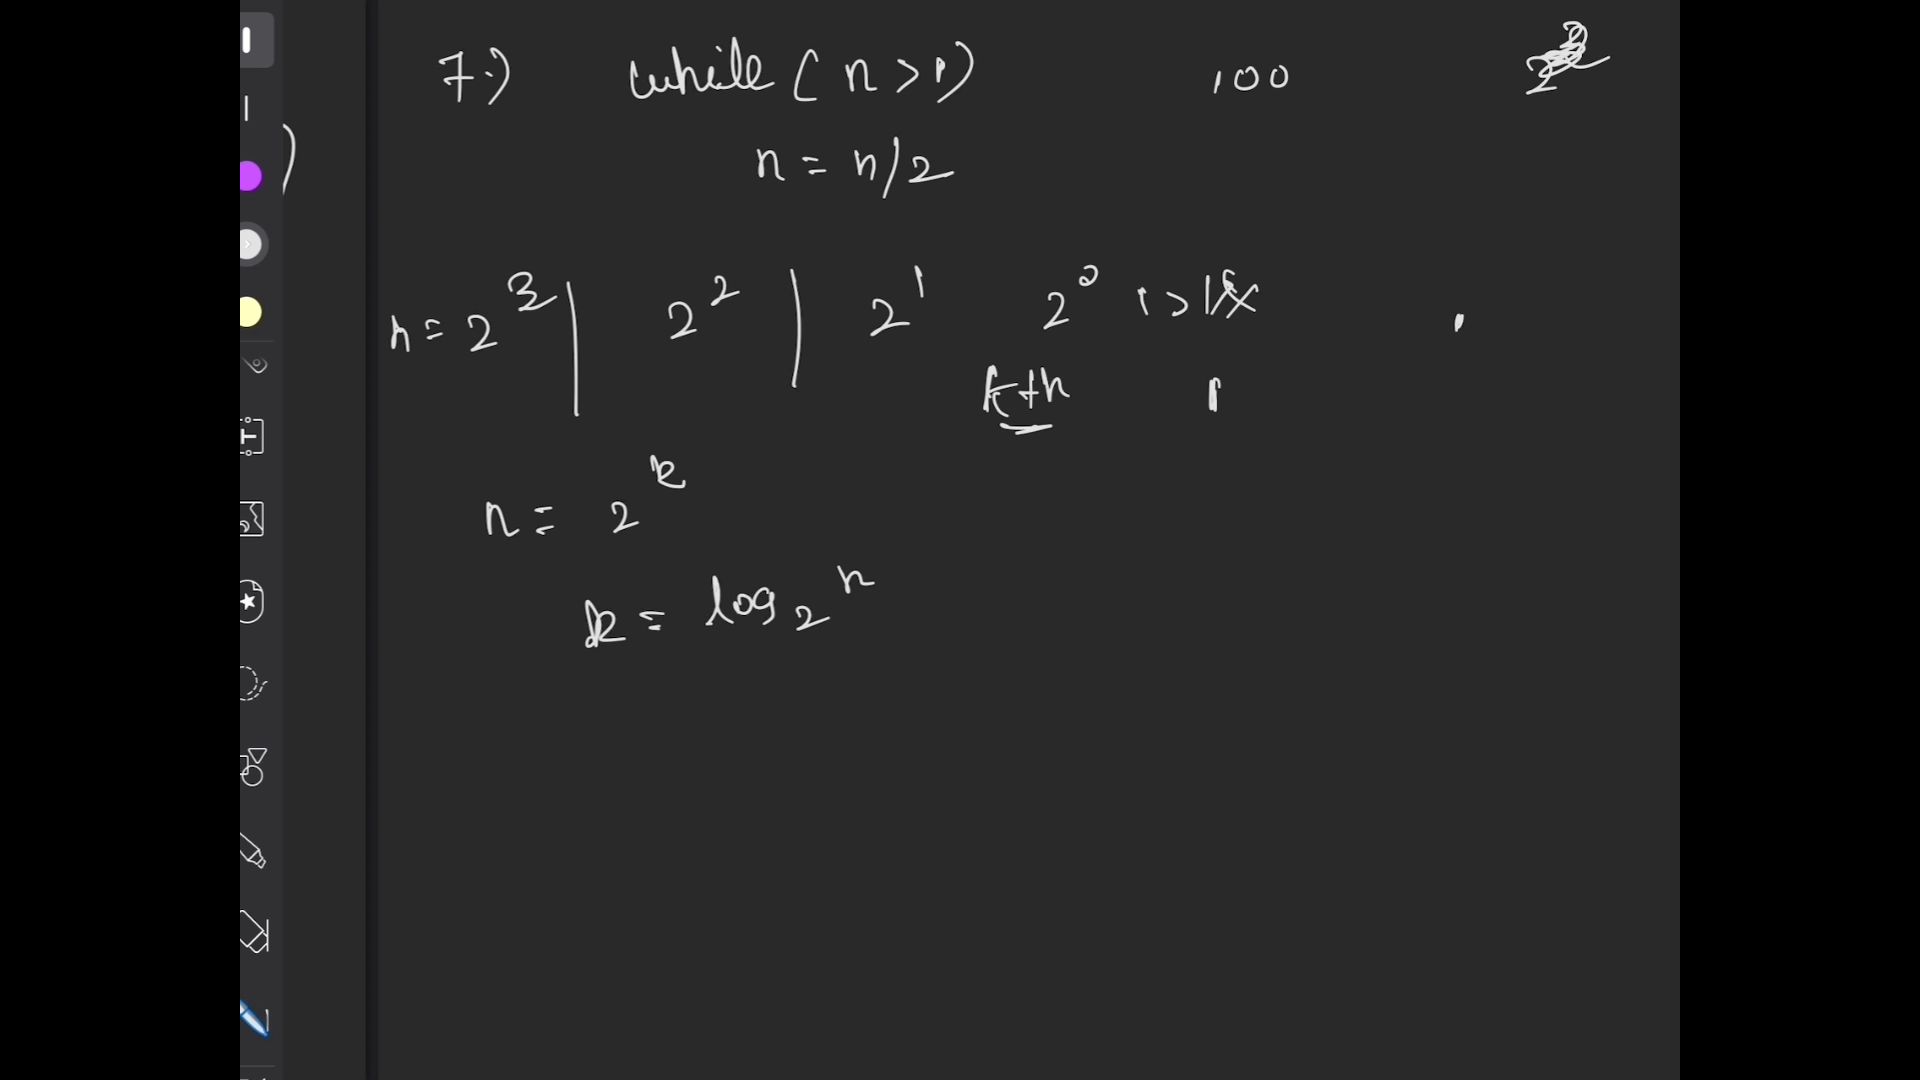 7.) while ( n > 1) 100
n = n/2
n = 2^3 | 2^2 | 2^1 2^0 1 > 1 x
kth 1
n = 2^k
k = log_2 n